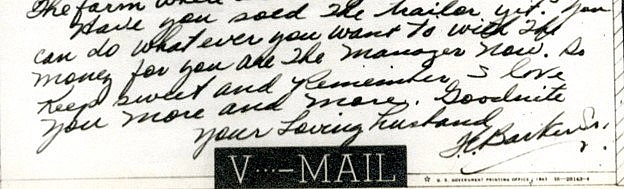 The farm where
Have you soed the trailor yit. You
can do what ever you want to with the
money for you are the manager now. So
Keep sweet and remember I love
you more and more. Goodnite
your Loving husband
F.C. Barker Sr.
V···-MAIL
☆ U. S. GOVERNMENT PRINTING OFFICE : 1943